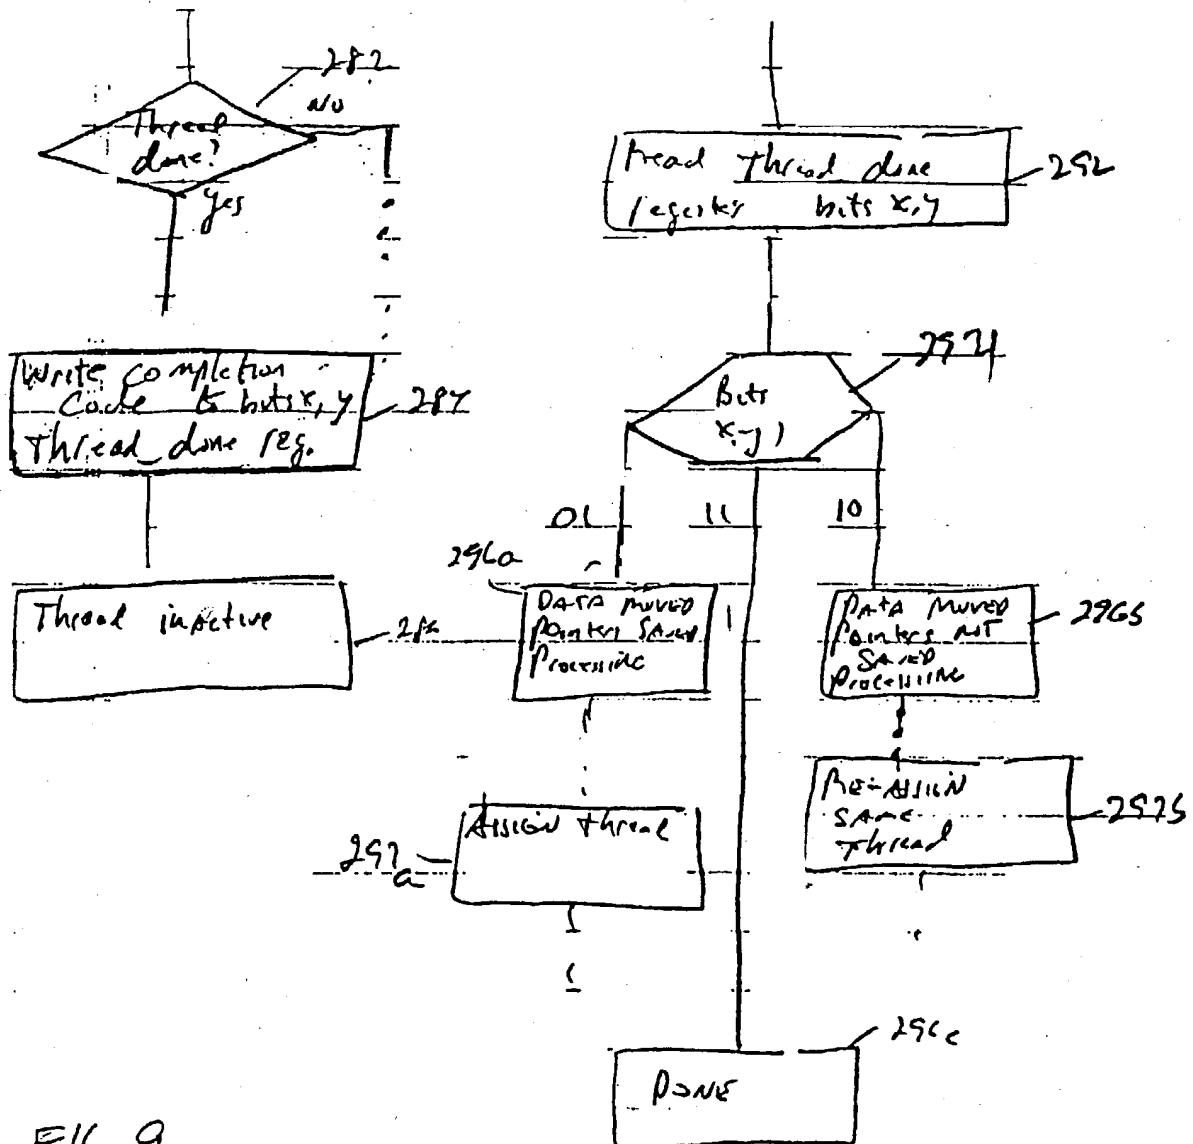 282
No
Thread
done?
yes
Write completion
Code to bits x, y
Thread_done reg.
284
Thread inactive
286
Read Thread done
register bits x, y
292
Bits
x, y
294
01
11
10
296a
DATA MOVED
Pointers SAVED
Processing
DATA MOVED
Pointers NOT
SAVED
Processing
296b
ASSIGN thread
297
a
RE-ASSIGN
SAME
Thread
297b
296c
DONE
FIG. 9